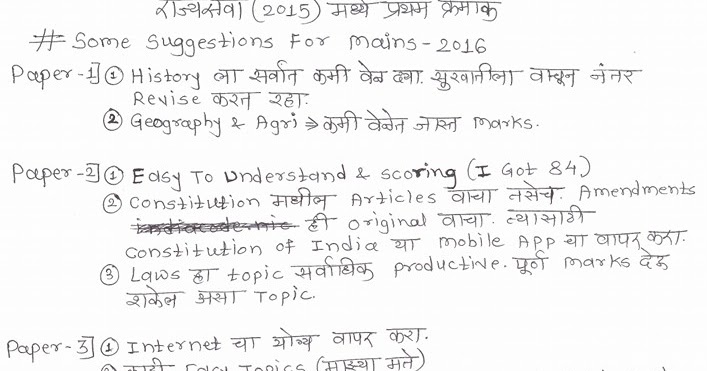 राज्यसेवा (2015) मध्ये प्रथम क्रमांक
# Some Suggestions For Mains - 2016
Paper - 1] ① History ला सर्वात कमी वेळ द्या. सुरवातीला वाचून नंतर
Revise करत रहा.
② Geography & Agri ⇒ कमी वेळेत जास्त Marks.
Paper - 2] ① Easy To Understand & scoring (I Got 84)
② Constitution मधील Articles वाचा तसेच Amendments
ही original वाचा. त्यासाठी
Constitution of India या mobile APP चा वापर करा.
③ Laws हा topic सर्वाधिक productive. पूर्ण marks देऊ
शकेल असा Topic.
Paper - 3] ① Internet चा योग्य वापर करा.
② काही Easy Topics (माझ्या मते)